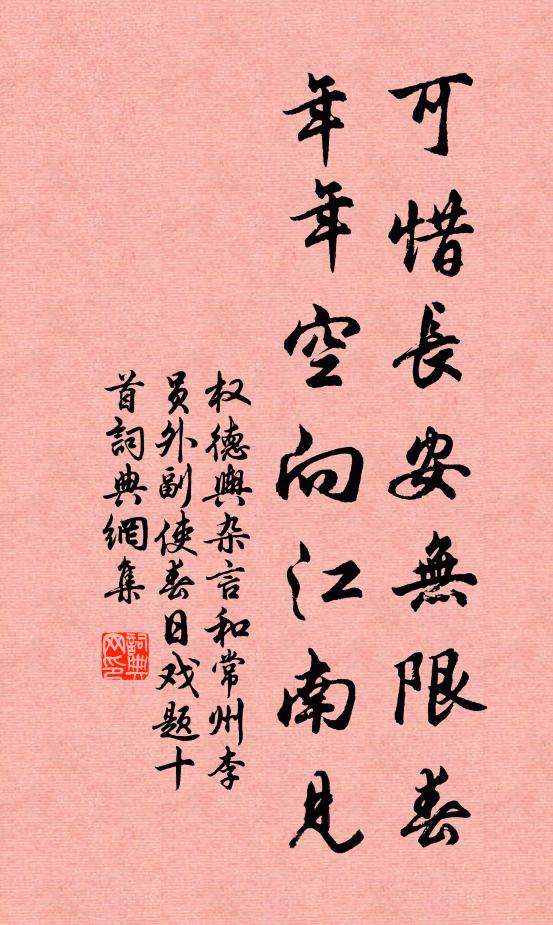 可惜長安無限春
年年空向江南見
权德輿杂言和常州李
员外副使春日戏题十
首詞典網集
詞典
网印